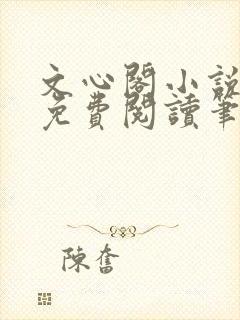 文心閣小說
免費閱讀筆
陳奮